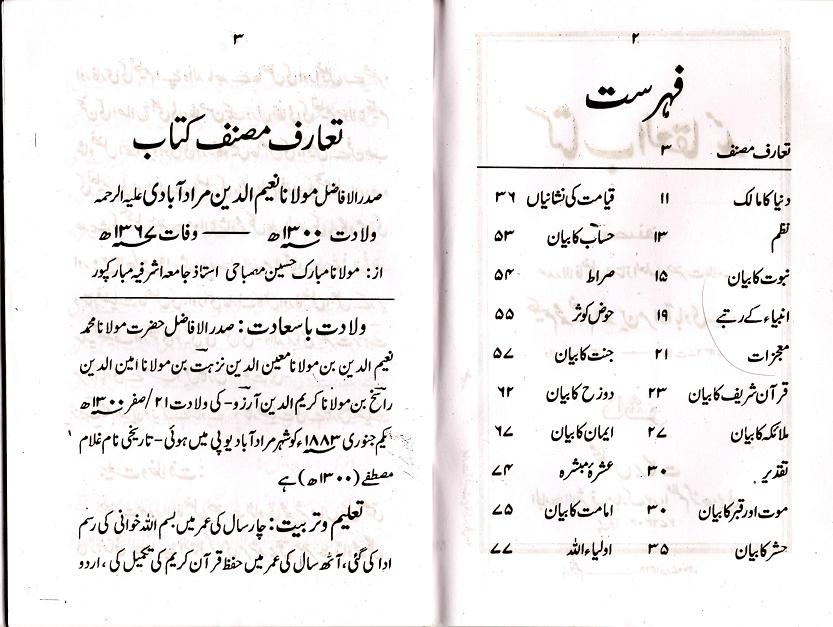 ۲
فہرست
تعارف مصنف ۳
دنیا کا مالک ۱۱ قیامت کی نشانیاں ۳۶
نظم ۱۳ حساب کا بیان ۵۳
نبوت کا بیان ۱۵ صراط ۵۴
انبیاء کے رتبے ۱۹ حوض کوثر ۵۵
معجزات ۲۱ جنت کا بیان ۵۷
قرآن شریف کا بیان ۲۳ دوزح کا بیان ۶۲
ملائکہ کا بیان ۲۷ ایمان کا بیان ۶۷
تقدیر ۳۰ عشرۂ مبشرہ ۷۴
موت اور قبر کا بیان ۳۰ امامت کا بیان ۷۵
حشر کا بیان ۳۵ اولیاء اللہ ۷۷
۳
تعارف مصنف کتاب
صدر الافاضل مولانا نعیم الدین مراد آبادی علیہ الرحمہ
ولادت ۱۳۰۰ھ —— وفات ۱۳۶۷ھ
از: مولانا مبارک حسین مصباحی استاذ جامعہ اشرفیہ مبارکپور
ولادت باسعادت: صدر الافاضل حضرت مولانا محمد
نعیم الدین بن مولانا معین الدین نزہت بن مولانا امین الدین
راسخ بن مولانا کریم الدین آرزو- کی ولادت ۲۱/صفر ۱۳۰۰ھ
یکم جنوری ۱۸۸۳ء کو شہر مراد آباد یوپی میں ہوئی- تاریخی نام غلام
مصطفے (۱۳۰۰ھ) ہے
تعلیم و تربیت: چار سال کی عمر میں بسم اللہ خوانی کی رسم
ادا کی گئی، آٹھ سال کی عمر میں حفظ قرآن کریم کی تکمیل کی، اردو